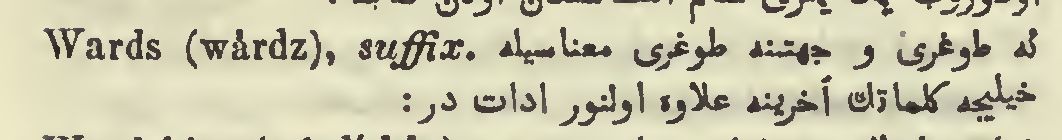 Wards (wårdz), suffix. ﻪﻟ طوغری و جهتنه طوغری معناسیله
خیلیجه كلماتك آخرینه علاوه اولنور ادات در :